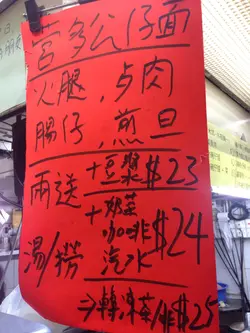 營多公仔面
火腿，卢肉
腸仔，煎旦
兩送
湯/撈
+豆漿$23
+奶茶
咖啡
汽水
$24
⇒轉凍茶/啡$25